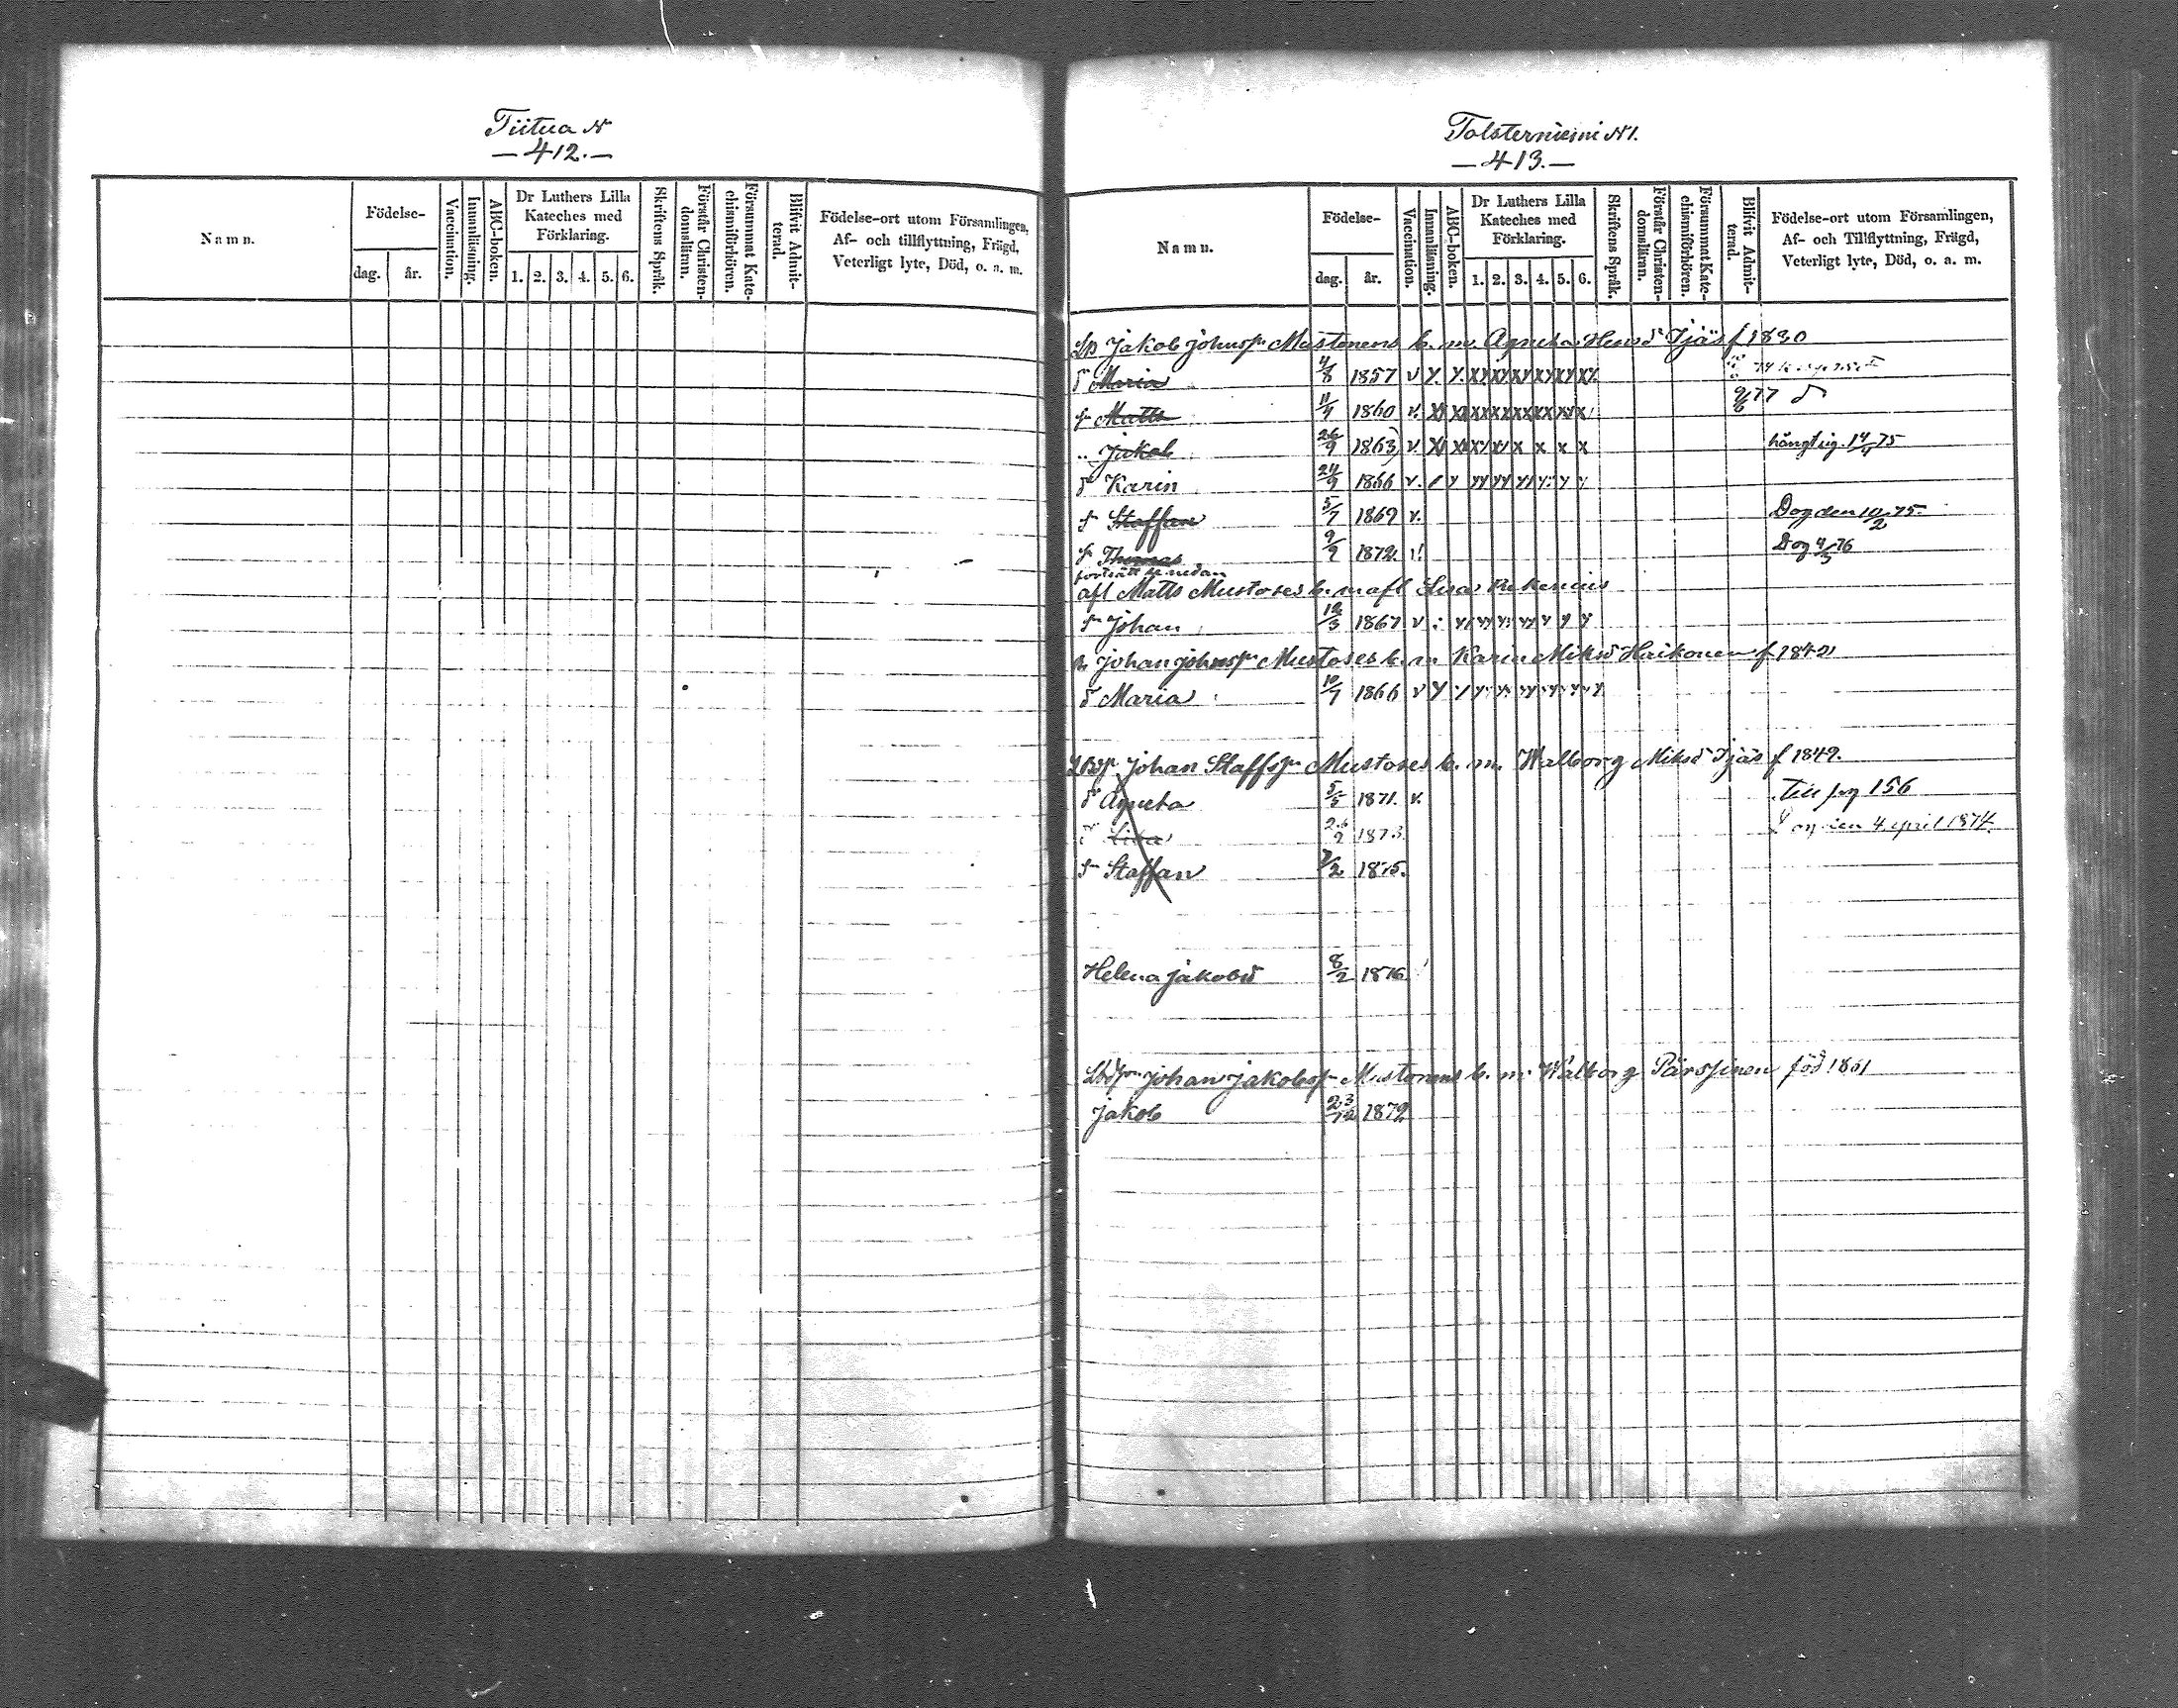 Tiitua N
— 412. —
Namn.
Födelse-
dag. år.
Vaccination.
Innanläsning.
ABC-boken.
Dr Luthers Lilla
Kateches med
Förklaring.
1. 2. 3. 4. 5. 6.
Skriftens Språk.
Förstår Christen-
domsläran.
Försummat Kate-
chismiförhören.
Blifvit Admit-
terad.
Födelse-ort utom Församlingen,
Af- och tillflyttning, Frägd,
Veterligt lyte, Död, o. a. m.
Tolsterniemi N1.
— 413. —
Namn.
Födelse-
dag. år.
Vaccination.
Innanläsning.
ABC-boken.
Dr Luthers Lilla
Kateches med
Förklaring.
1. 2. 3. 4. 5. 6.
Skriftens Språk.
Förstår Christen-
domsläran.
Försummat Kate-
chismiförhören.
Blifvit Admit-
terad.
Födelse-ort utom Församlingen,
Af- och Tillflyttning, Frägd,
Veterligt lyte, Död, o. a. m.
Jakob Johnsn Mustonens b. m. Agneta Hensd Tjäs f 1830
d Maria 4/8 1857 v
sn Matts 11/4 1860 v. 9/6 77
" Jakob 26/9 1863 v. 14/4 75
d Karin 24/9 1866 v.
sn Staffan 5/7 1869 v. Dog den 10/2 75.
sn Thomas 9/9 1872. Dog 4/3 76
fortsätt se nedan
afl Matts Mustoses b. m afl Lisa
sn Johan 12/3 1867 v
Johan Johnsn Mustoses b. m Karin Miksd Haikonen f 1842
d Maria 10/7 1866 v
Johan Staffsn Mustoses b. m. Walborg Miksd Tjäs f 1849.
d Agneta 5/5 1871. v. till pag 156
d Lisa 26/2 1873. Dog den 4 april 1874.
sn Staffan 7/2 1875.
Helena Jakobsd 8/2 1876.
Johan Jakobssn Mustonens b. m. Walborg Pärssinen född 1851
Jakob 23/12 1879